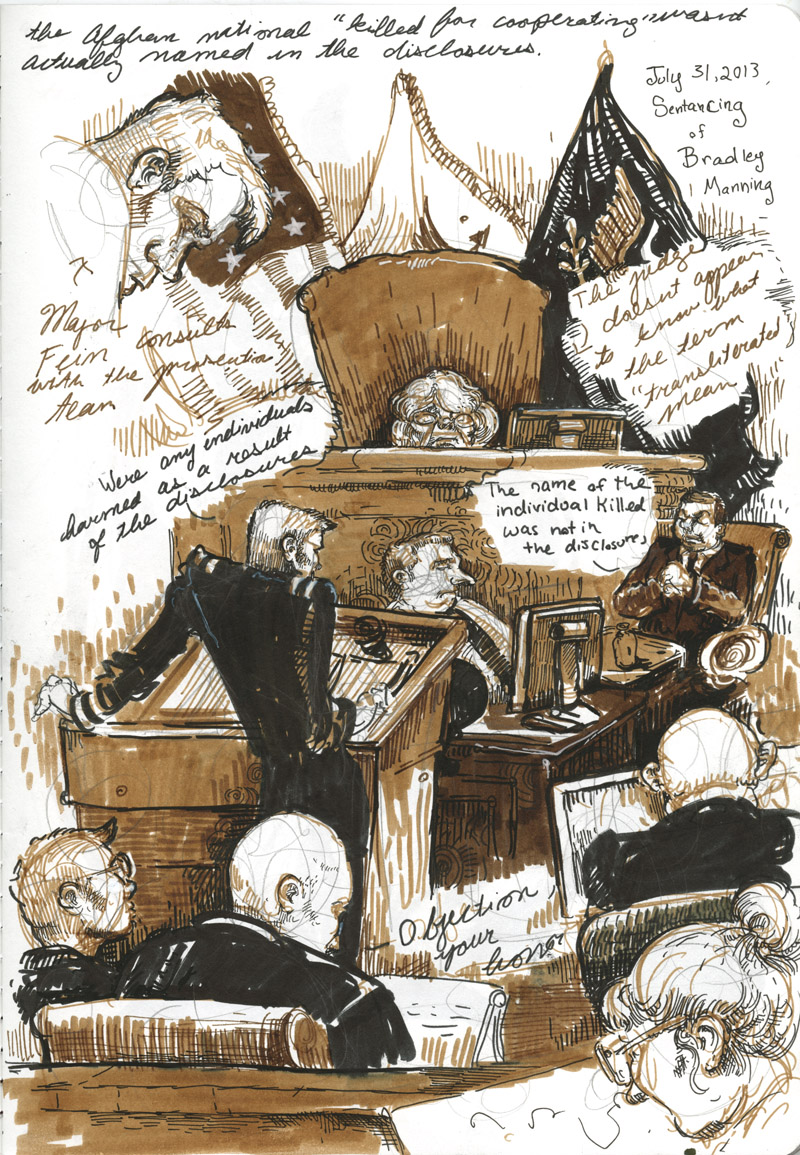 the Afghan national "killed for cooperating" wasnt
actually named in the disclosures.
July 31, 2013,
Sentancing
of
Bradley
Manning
The judge
doesnt appear
to know what
the term
"transliterated"
mean
Major
Fein consults
with the prosecution
team
Were any individuals
harmed as a result
of the disclosures
The name of the
individual killed
was not in
the disclosures
Objection
your
honor